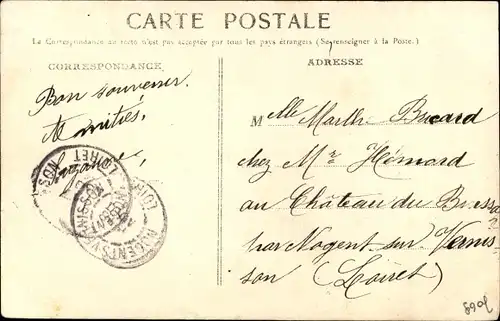 CARTE POSTALE
La Correspondance au recto n'est pas acceptée par tous les pays étrangers (Se renseigner à la Poste.)
CORRESPONDANCE
Bon souvenir.
Amitiés,
Suzanne
ADRESSE
Melle Marthe
chez Mr Hémard
au Château du
par Nogent sur Vernis-
son (Loiret)
LOIRET
NOGENT-S-VERNISSON
LOIRET
8908